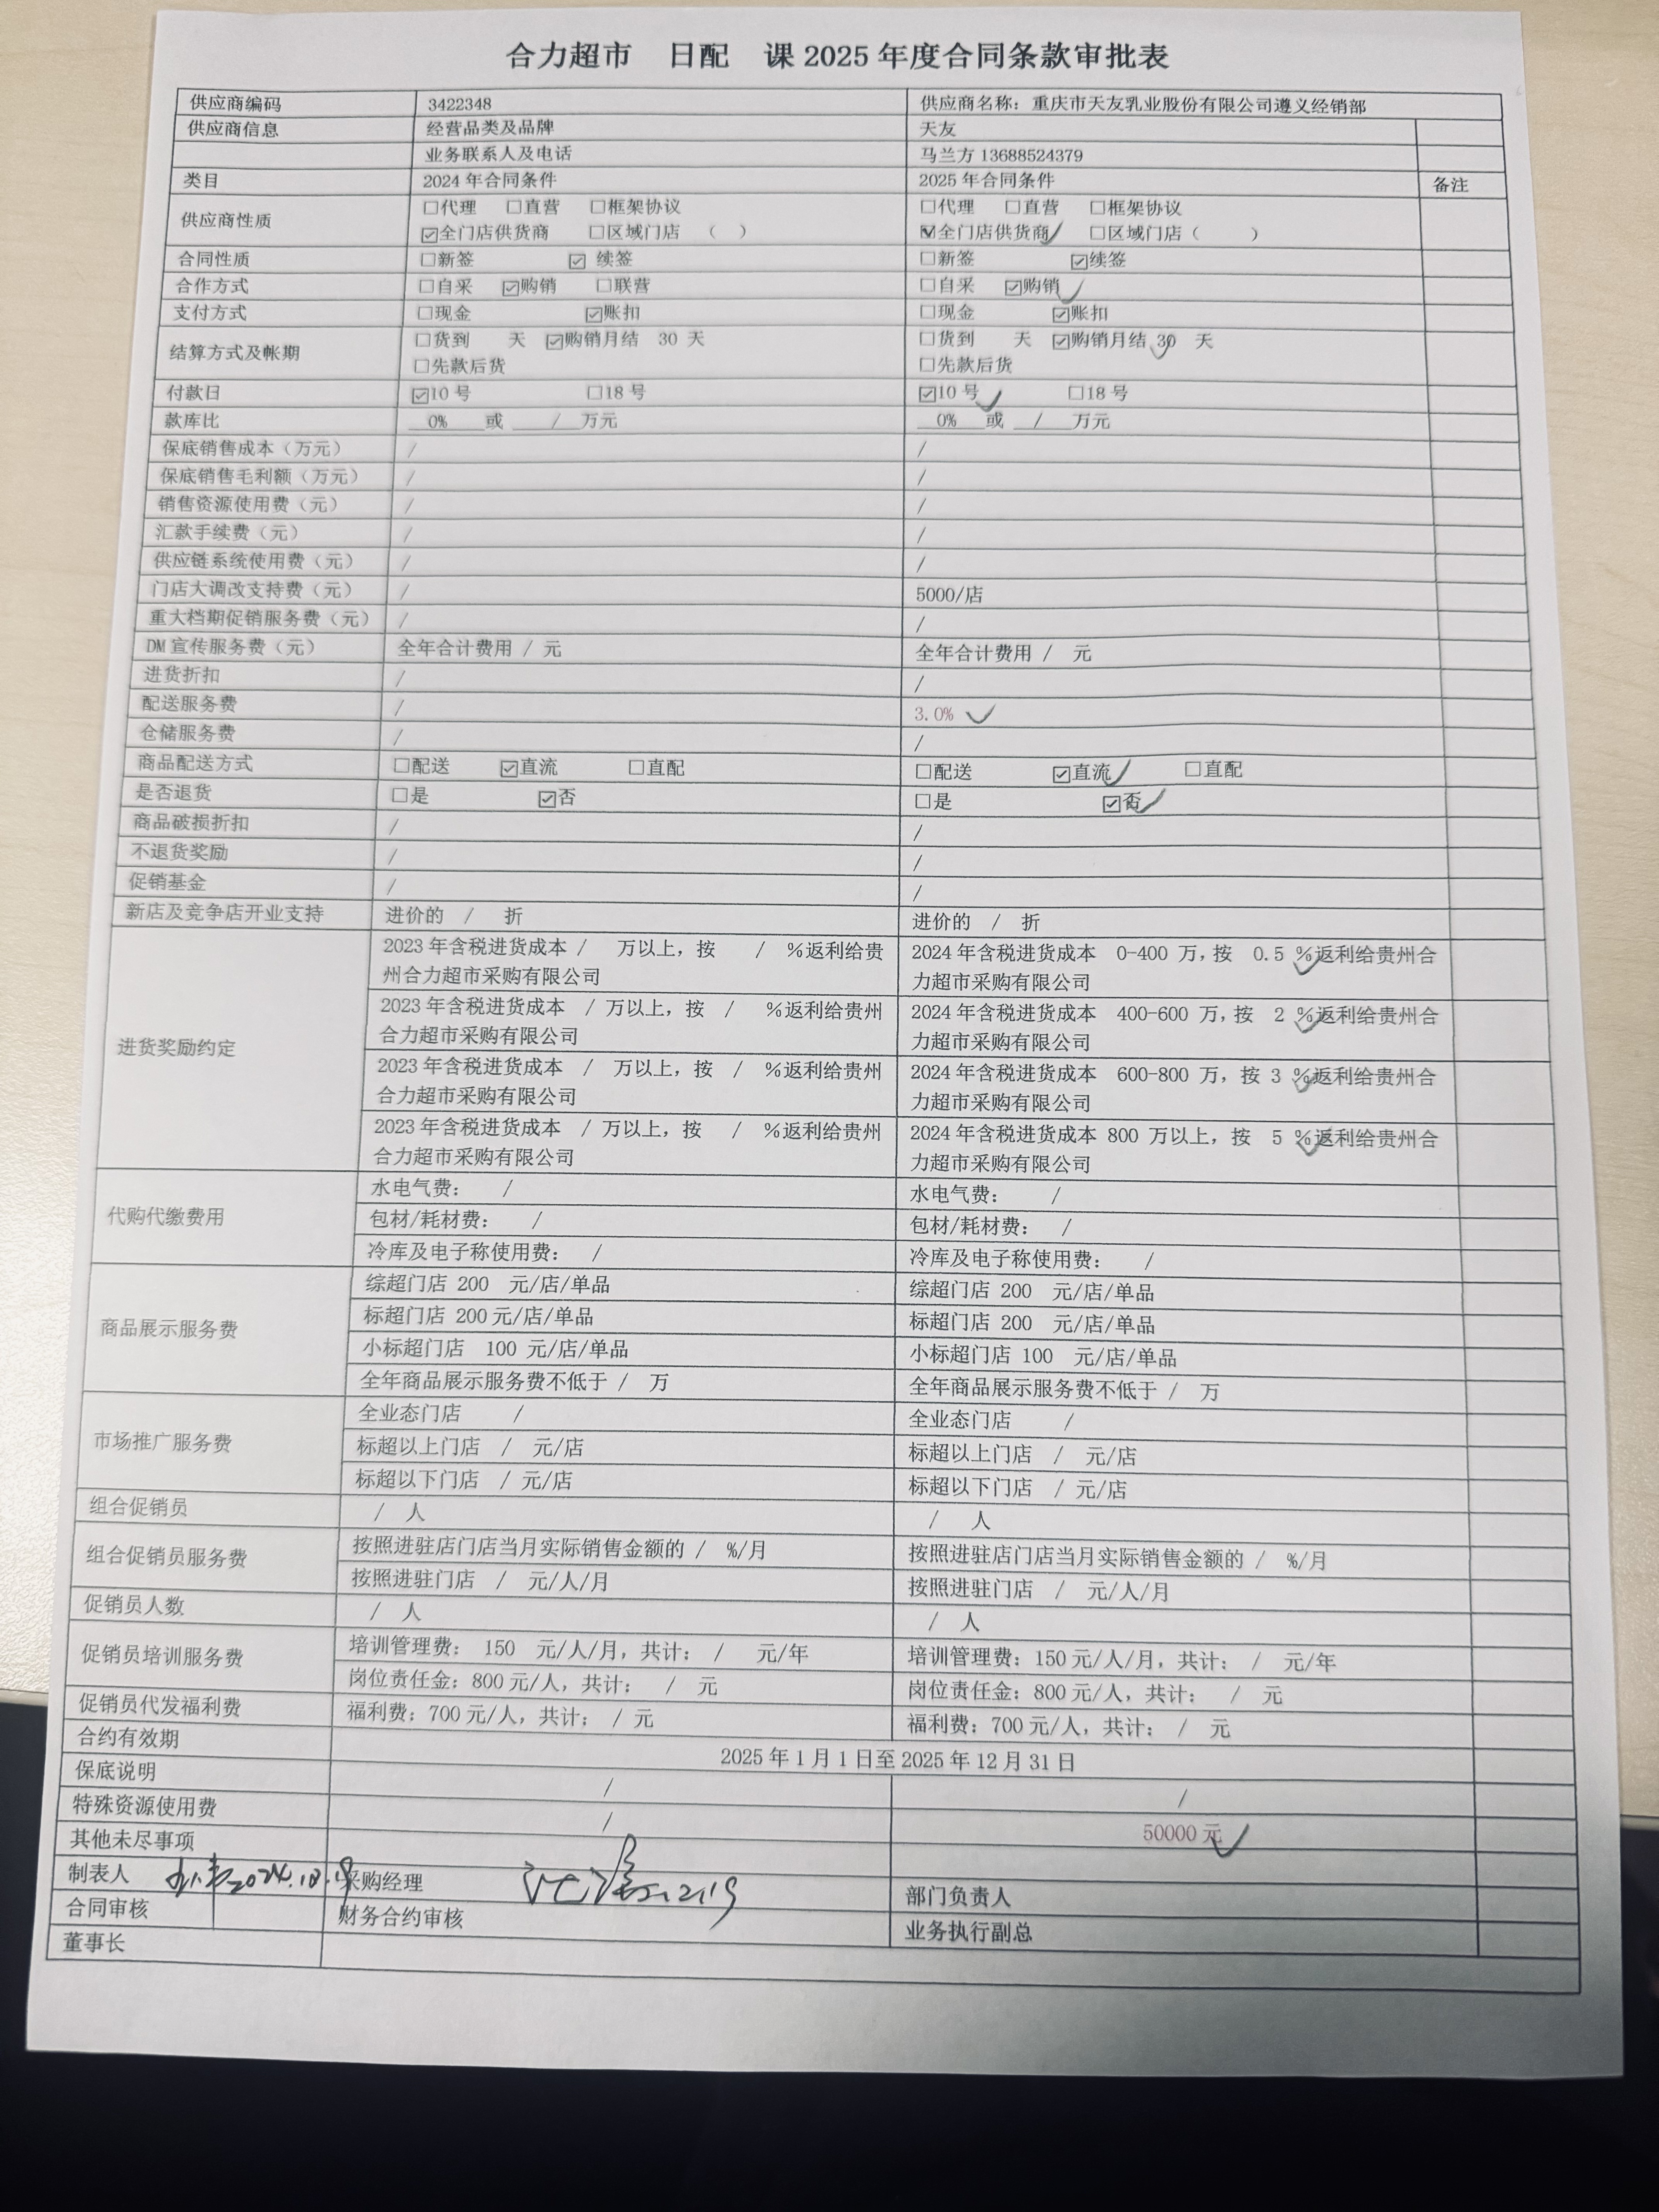 合力超市 日配 课 2025 年度合同条款审批表
供应商编码 3422348 供应商名称：重庆市天友乳业股份有限公司遵义经销部
供应商信息 经营品类及品牌 天友
业务联系人及电话 马兰方 13688524379
类目 2024 年合同条件 2025 年合同条件 备注
供应商性质 □代理 □直营 □框架协议 □代理 □直营 □框架协议
☑全门店供货商 □区域门店 （ ） ☑全门店供货商 □区域门店（ ）
合同性质 □新签 ☑ 续签 □新签 ☑续签
合作方式 □自采 ☑购销 □联营 □自采 ☑购销
支付方式 □现金 ☑账扣 □现金 ☑账扣
结算方式及帐期 □货到 天 ☑购销月结 30 天 □货到 天 ☑购销月结 30 天
□先款后货 □先款后货
付款日 ☑10 号 □18 号 ☑10 号 □18 号
款库比 0% 或 / 万元 0% 或 / 万元
保底销售成本（万元） / /
保底销售毛利额（万元） / /
销售资源使用费（元） / /
汇款手续费（元） / /
供应链系统使用费（元） / /
门店大调改支持费（元） / 5000/店
重大档期促销服务费（元） / /
DM 宣传服务费（元） 全年合计费用 / 元 全年合计费用 / 元
进货折扣 / /
配送服务费 / 3.0%
仓储服务费 / /
商品配送方式 □配送 ☑直流 □直配 □配送 ☑直流 □直配
是否退货 □是 ☑否 □是 ☑否
商品破损折扣 / /
不退货奖励 / /
促销基金 / /
新店及竞争店开业支持 进价的 / 折 进价的 / 折
进货奖励约定 2023 年含税进货成本 / 万以上，按 / %返利给贵 2024 年含税进货成本 0-400 万，按 0.5 %返利给贵州合
州合力超市采购有限公司 力超市采购有限公司
2023 年含税进货成本 / 万以上，按 / %返利给贵州 2024 年含税进货成本 400-600 万，按 2 %返利给贵州合
合力超市采购有限公司 力超市采购有限公司
2023 年含税进货成本 / 万以上，按 / %返利给贵州 2024 年含税进货成本 600-800 万，按 3 %返利给贵州合
合力超市采购有限公司 力超市采购有限公司
2023 年含税进货成本 / 万以上，按 / %返利给贵州 2024 年含税进货成本 800 万以上，按 5 %返利给贵州合
合力超市采购有限公司 力超市采购有限公司
代购代缴费用 水电气费： / 水电气费： /
包材/耗材费： / 包材/耗材费： /
冷库及电子称使用费： / 冷库及电子称使用费： /
商品展示服务费 综超门店 200 元/店/单品 综超门店 200 元/店/单品
标超门店 200 元/店/单品 标超门店 200 元/店/单品
小标超门店 100 元/店/单品 小标超门店 100 元/店/单品
全年商品展示服务费不低于 / 万 全年商品展示服务费不低于 / 万
市场推广服务费 全业态门店 / 全业态门店 /
标超以上门店 / 元/店 标超以上门店 / 元/店
标超以下门店 / 元/店 标超以下门店 / 元/店
组合促销员 / 人 / 人
组合促销员服务费 按照进驻店门店当月实际销售金额的 / %/月 按照进驻店门店当月实际销售金额的 / %/月
按照进驻门店 / 元/人/月 按照进驻门店 / 元/人/月
促销员人数 / 人 / 人
促销员培训服务费 培训管理费： 150 元/人/月，共计： / 元/年 培训管理费：150 元/人/月，共计： / 元/年
岗位责任金：800 元/人，共计： / 元 岗位责任金：800 元/人，共计： / 元
促销员代发福利费 福利费：700 元/人，共计： / 元 福利费：700 元/人，共计： / 元
合约有效期 2025 年 1 月 1 日至 2025 年 12 月 31 日
保底说明 / /
特殊资源使用费 / 50000 元
其他未尽事项
制表人 采购经理 部门负责人
合同审核 财务合约审核 业务执行副总
董事长